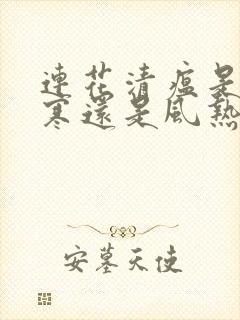 連花清瘟是
寒還是風熱
安墓天使